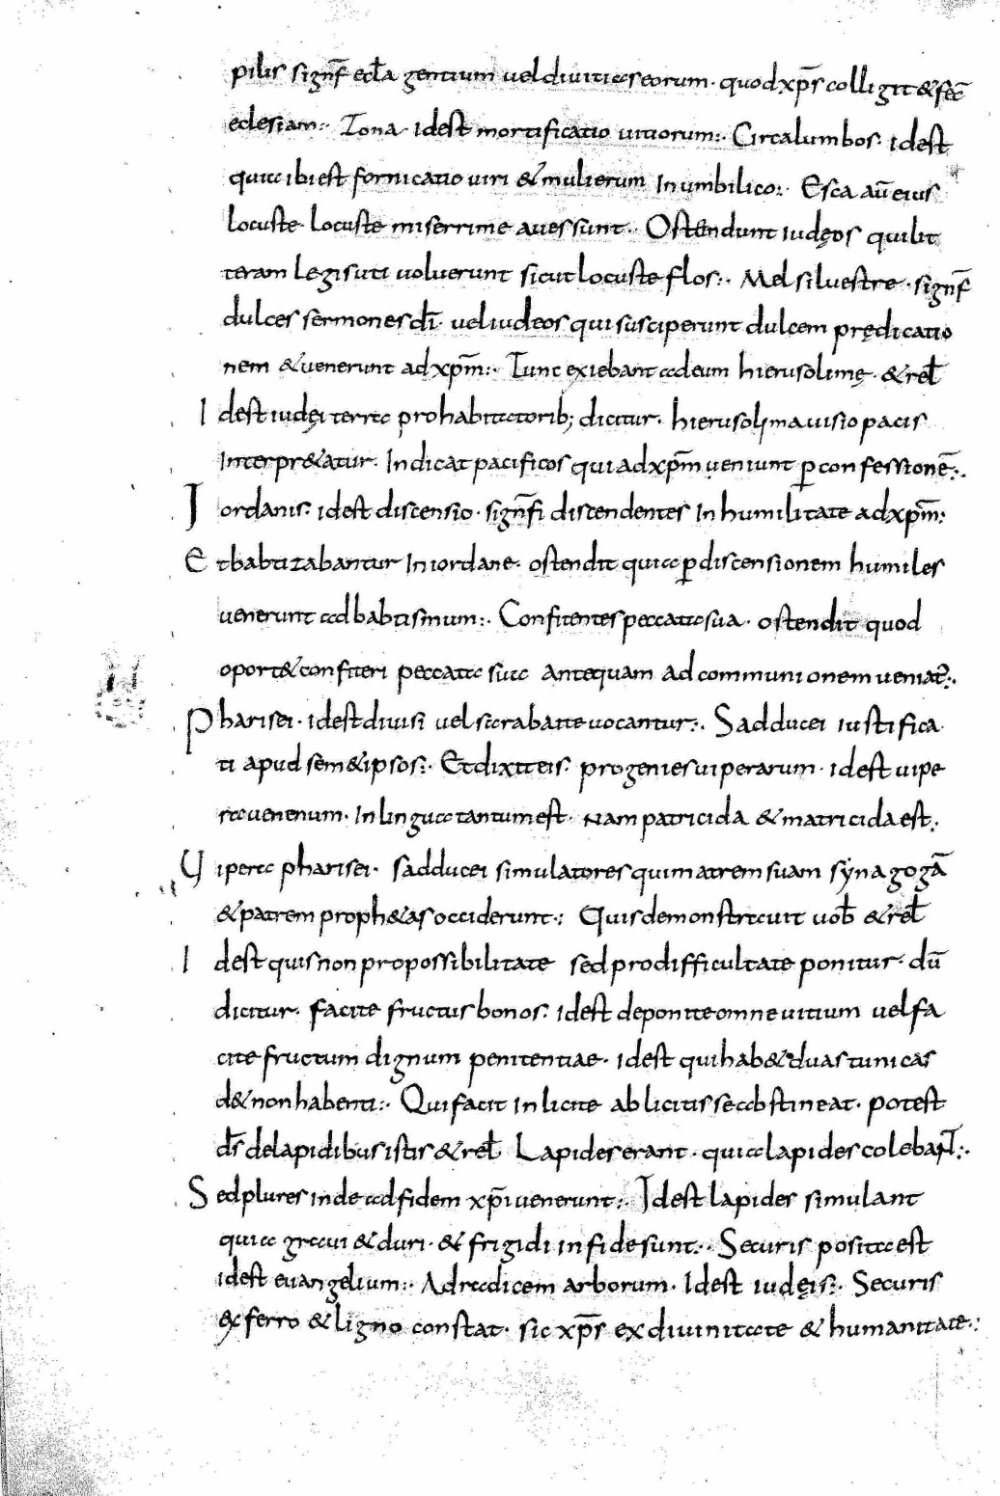 pilis signf̄ ecła gentium vel divitias eorum· quod xp̄s colligit & fec̄
eclesiam:· Zona· idest mortificatio vitiorum:· Circa lumbos· idest
quia ibi est fornicatio viri & mulierum In umbilico:· Esca aū eius
locuste· locuste miserrime aves sunt:· Ostendunt iudęos qui lit
teram legis uti voluerunt sicut locuste flos:· Mel silvestre· signf̄
dulces sermones dī· vel iudeos qui susciperunt dulcem prędicatio
nem & venerunt ad xp̄m:· Tunc exiebant ad eum hierusolimę· & reł
Idest iudęi terra pro habitatorib; dicitur· hierusolima visio pacis
Interpr&atur· Indicat pacificos qui ad xp̄m veniunt ꝑ confessionē:·
Iordanis· idest discensio· signf̄i discendentes In humilitate ad xp̄m:
Et babtizabantur In iordane· ostendit quia ꝑ discensionem humiles
venerunt ad babtismum:· Confitentes peccata sua· ostendit quod
oport& confiteri peccata sua antequam ad communionem veniat:·
Pharisei· idest divisi vel sarabaite vocantur:· Sadducei iustifica
ti apud sem&ipsos:· Et dixit eis· progenies viperarum· idest vipe
ra venenum· In lingua tantum est· Nam patricida & matricida est·
Vipera pharisei· sadducei simulatores qui matrem suam synagogā
& patrem proph&as occiderunt·: Quis demonstravit vob̄ & reł
Idest quis non pro possibilitate sed pro difficultate ponitur· dū
dicitur· facite fructus bonos· idest deponite omne vitium vel fa
cite fructum dignum penitentiae· idest qui hab& duas tunicas
d& non habenti:· Qui facit inlicite ab licitis se abstineat· potest
ds̄ de lapidibus istis & reł Lapides erant· quia lapides colebant:·
Sed plures inde ad fidem xp̄i venerunt:· Idest lapides simulant
quia gravi & duri· & frigidi in fide sunt:· Securis posita est
idest evangelium:· Ad radicem arborum· Idest iudęis:· Securis
ex ferro & ligno constat· sic xp̄s ex divinitate & humanitate·: